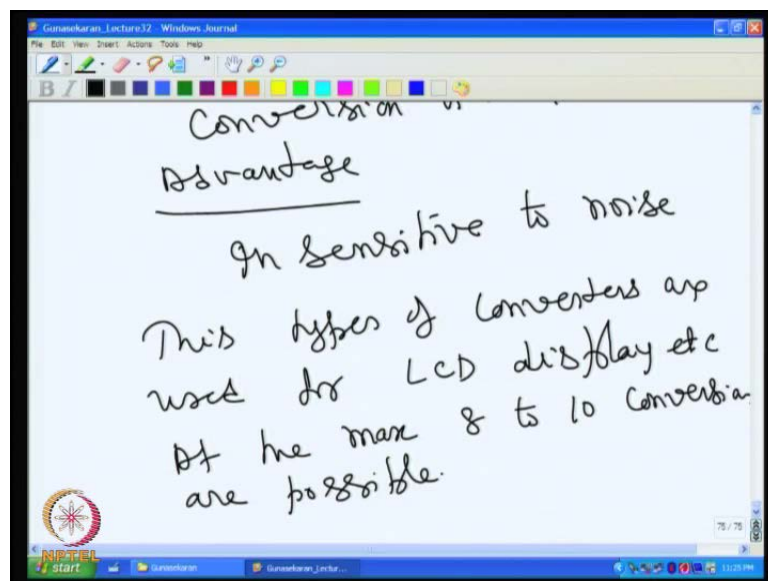 Gunasekaran_Lecture32 - Windows Journal
File Edit View Insert Actions Tools Help
B I
Conversion
Advantage
In sensitive to noise
This types of converters are
used for LCD display etc
At the max 8 to 10 conversion
are possible.
75 / 75
NPTEL
start Gunasekaran Gunasekaran_Lectur... 11:25 PM